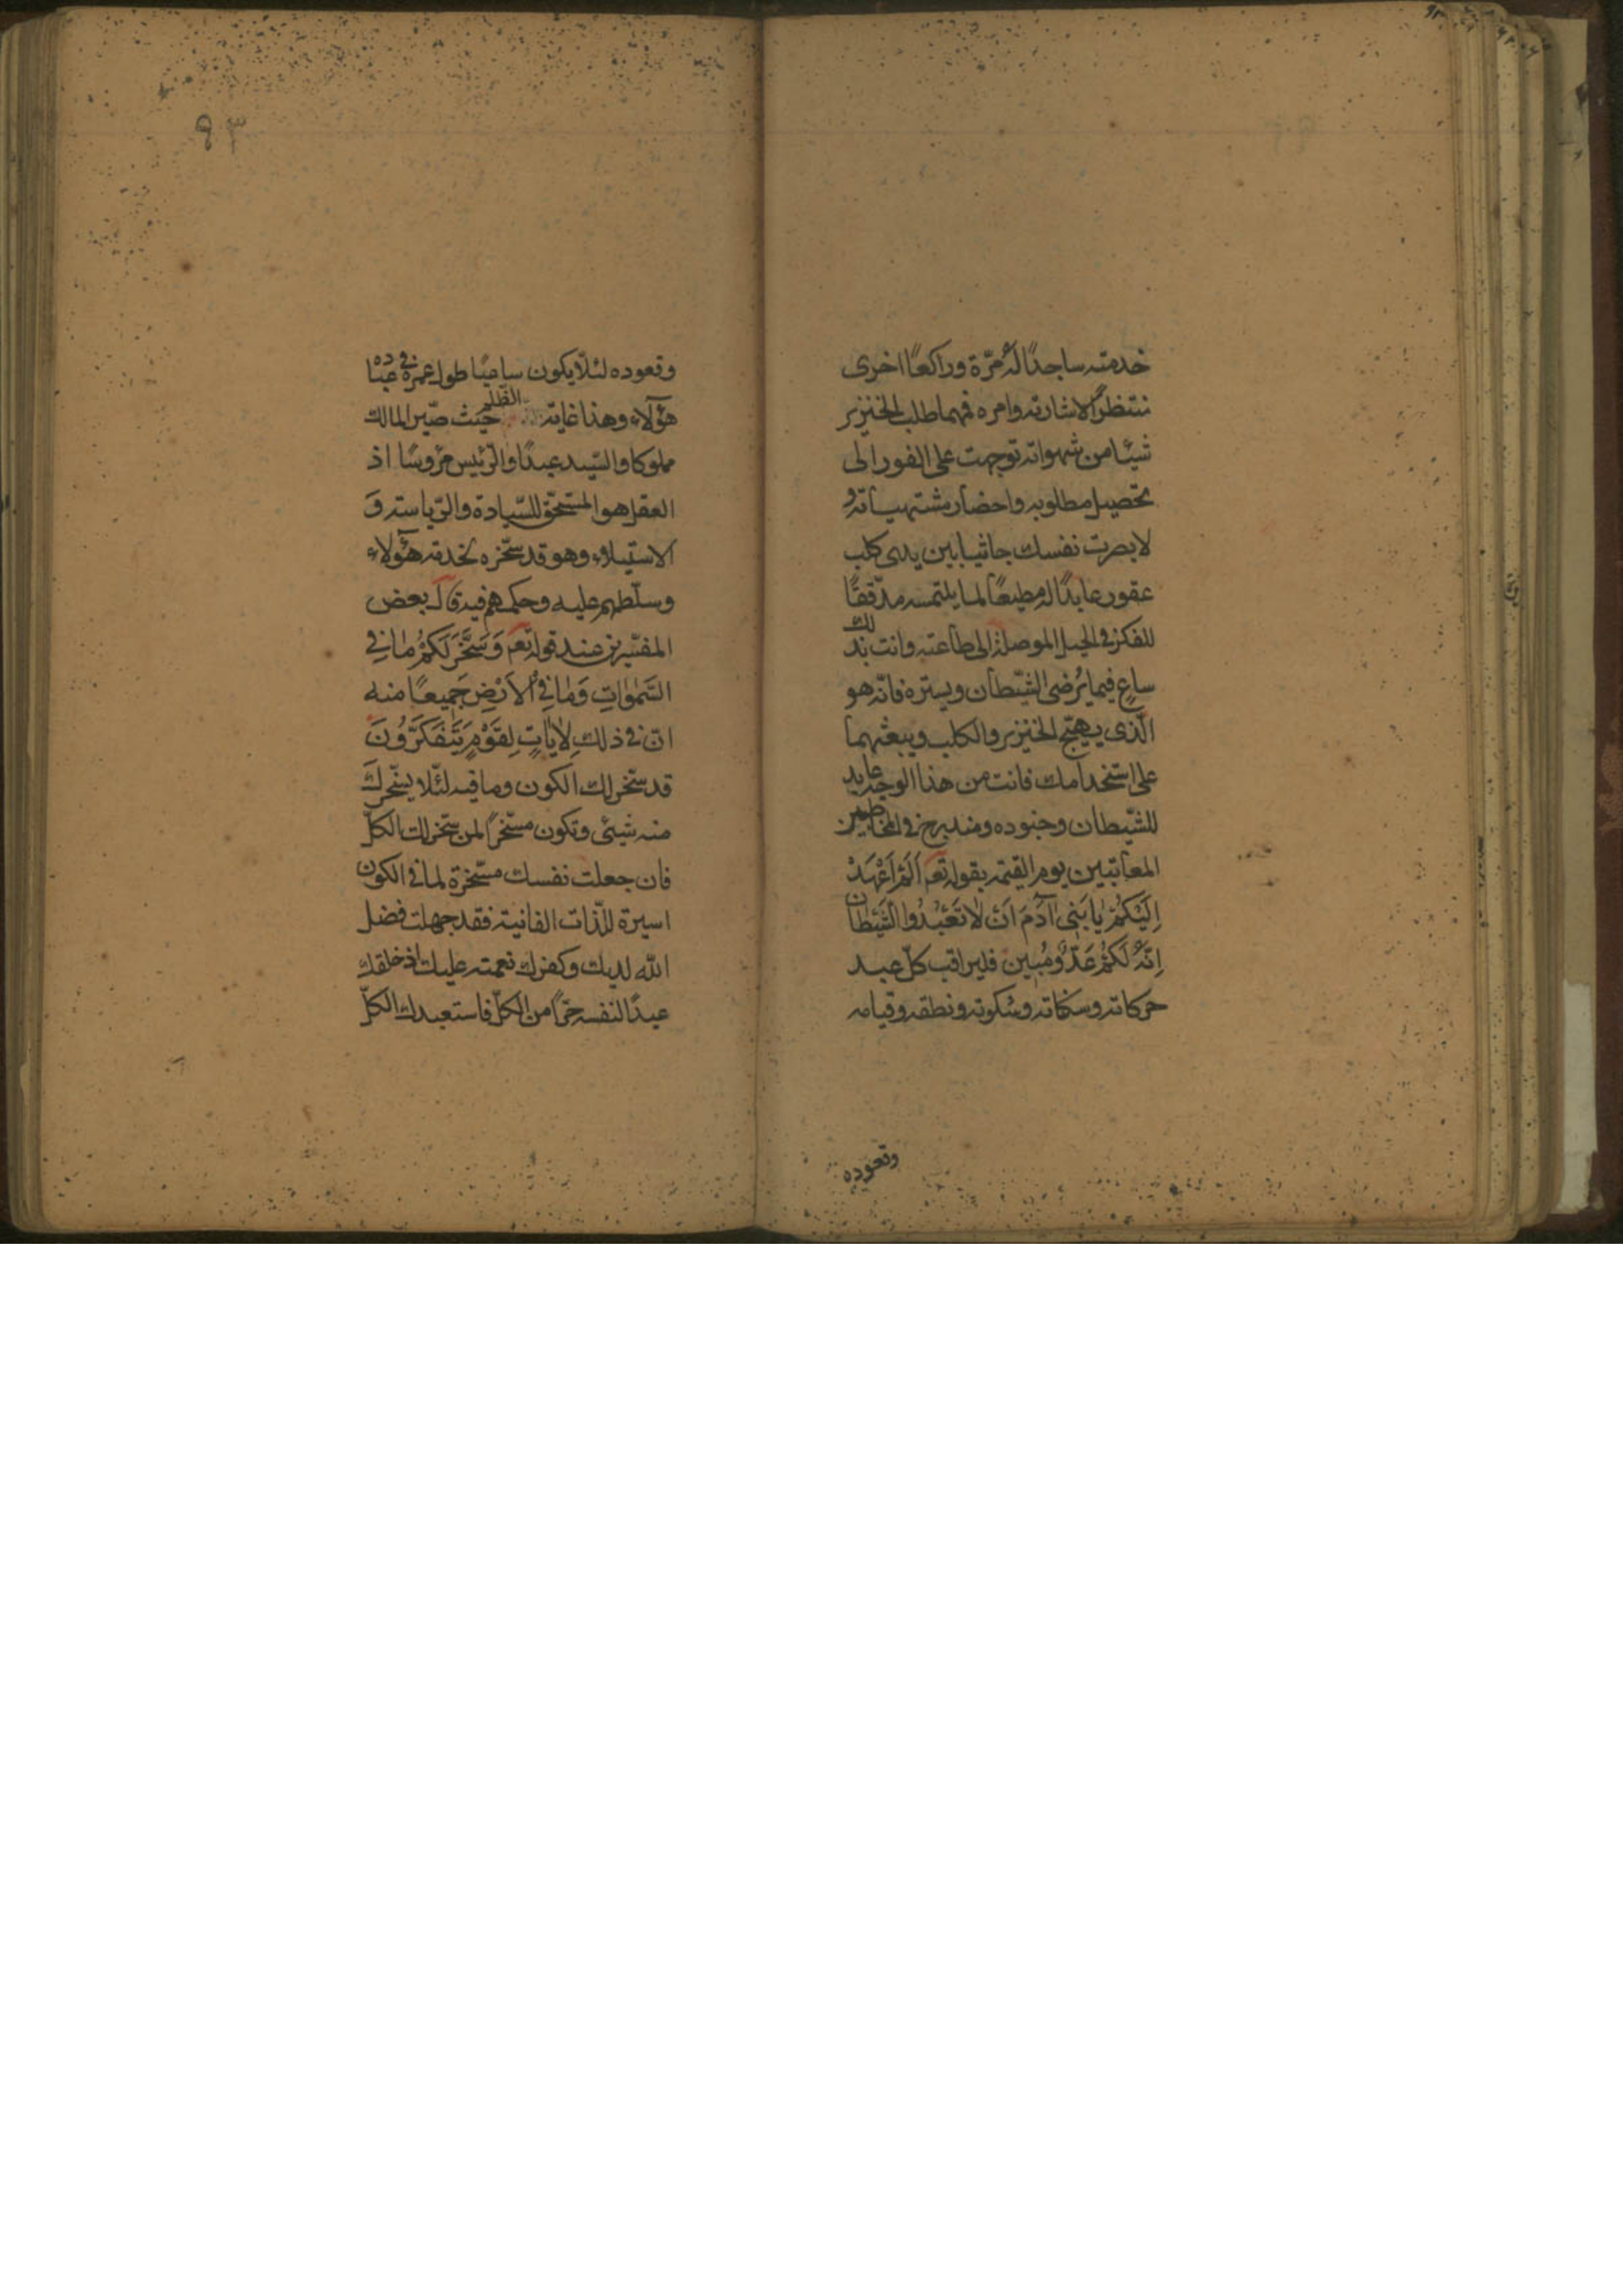 خدمته ساجدًا لهُ مرّة وراكعًا اخرى
منتظرًا لاشارته وامره فمهما طلب الخنزير
شيئا من شهواته توجهت على الفور الى
تحصيل مطلوبه واحضار مشتهياته و
لابصرت نفسك جاثيا بين يدى كلب
عقور عابدًا له مطيعًا لما يلتمسه مدّققًا
للفكر فى الحيل الموصلة الى طاعته وانت بذلك
ساعٍ فيما يُرضى الشيّطان ويسرّه فانّه هو
الّذى يهيّج الخنزير والكلب ويبعثهما
على استخدامك فانت من هذا الوجه عابد
للشّيطان وجنوده ومندرج فى المخاطبين
المعاتبين يوم القيمة بقوله تعم اَلَمْ اَعْهَدْ
اِلَيْكُمْ يٰا بَنِى آدَمَ اَنْ لٰا تَعْبُدُوا الْشَّيْطان
اِنَّهُ لَكُمْ عَدُوٌّ مُبِين فليراقب كلّ عبد
حركاته وسكناته وسكوته ونطقه وقيامه
وقعوده
٩٣
وقعوده لئلّا يكون ساعيًا طول عمره فى عبادة
هؤلاء وهذا غاية الظلم حيث صيّر المالك
مملوكا والسّيد عبدًا والرّئيس مرؤسًا اذ
العقل هو المستحق للسّيادة والرّياسة وَ
الاستيلاء وهو قد سخّره لخدمة هؤلاء
وسلّطهم عليه وحكمهم فيه قالَ بعض
المفسّرين عند قوله تعم وَسَخَّرَ لَكُمْ مٰا فِى
السَّمٰوٰاتِ وَمٰا فِى الْاَرْضِ جَمِيعًا منه
انّ فى ذلك لَاٰيٰاتٍ لِقَوْمٍ يَتَفَكَّرُونَ
قد سخّر لك الكون وما فيه لئلّا يسخّركَ
منه شيئى وتكون مسخّرًا لمن سخّر لك الكلّ
فان جعلت نفسك مسخّرة لما فى الكون
اسيرة للّذات الفانية فقد جهلت فضل
اللّه لديك وكفرت نعمته عليك اذ خلقك
عبدًا لنفسه حرًّا من الكلّ فاستعبدك الكلّ